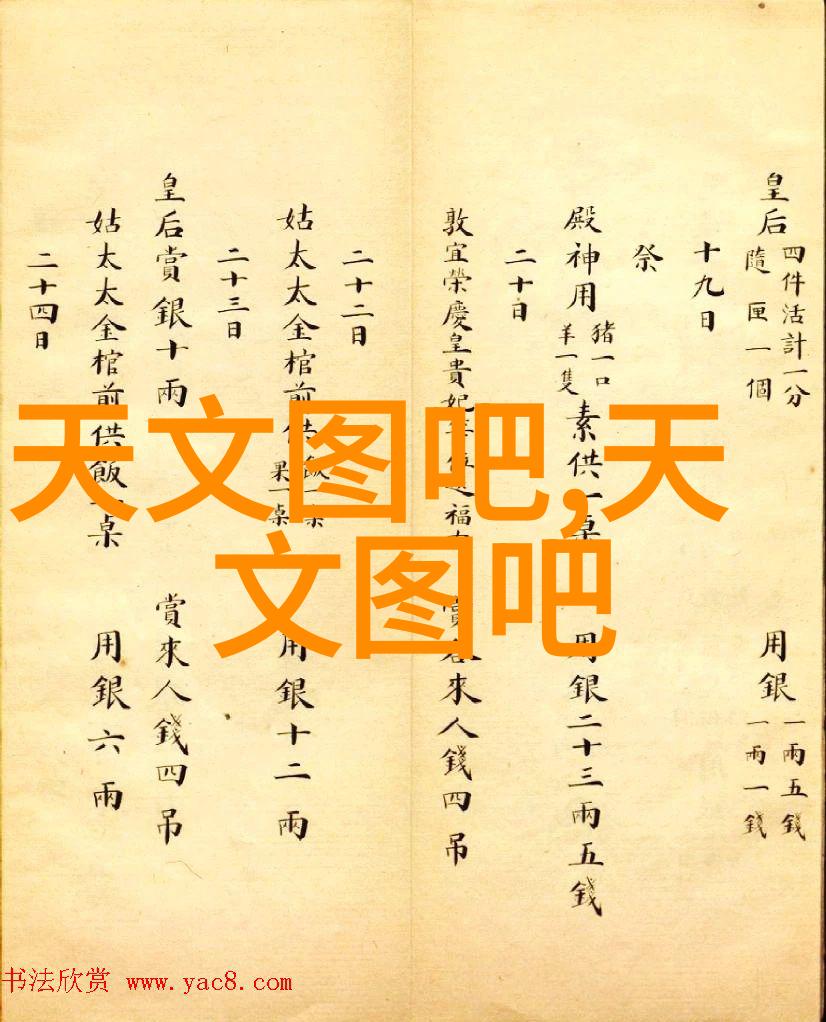 皇后
四件活計一分
隨匣一個
用銀
一兩五錢
一兩一錢
十九日
祭
殿神用
豬一口
羊一隻
素供一桌
用銀二十三兩五錢
二十日
敦宜榮慶皇貴妃
福
賞
來人錢四吊
二十二日
姑太太金棺前供
飯一桌
果一桌
用銀十二兩
二十三日
皇后賞銀十兩
賞來人錢四吊
姑太太金棺前供飯一桌
用銀六兩
二十四日
天文图吧,天
文图吧
书法欣赏 www.yac8.com